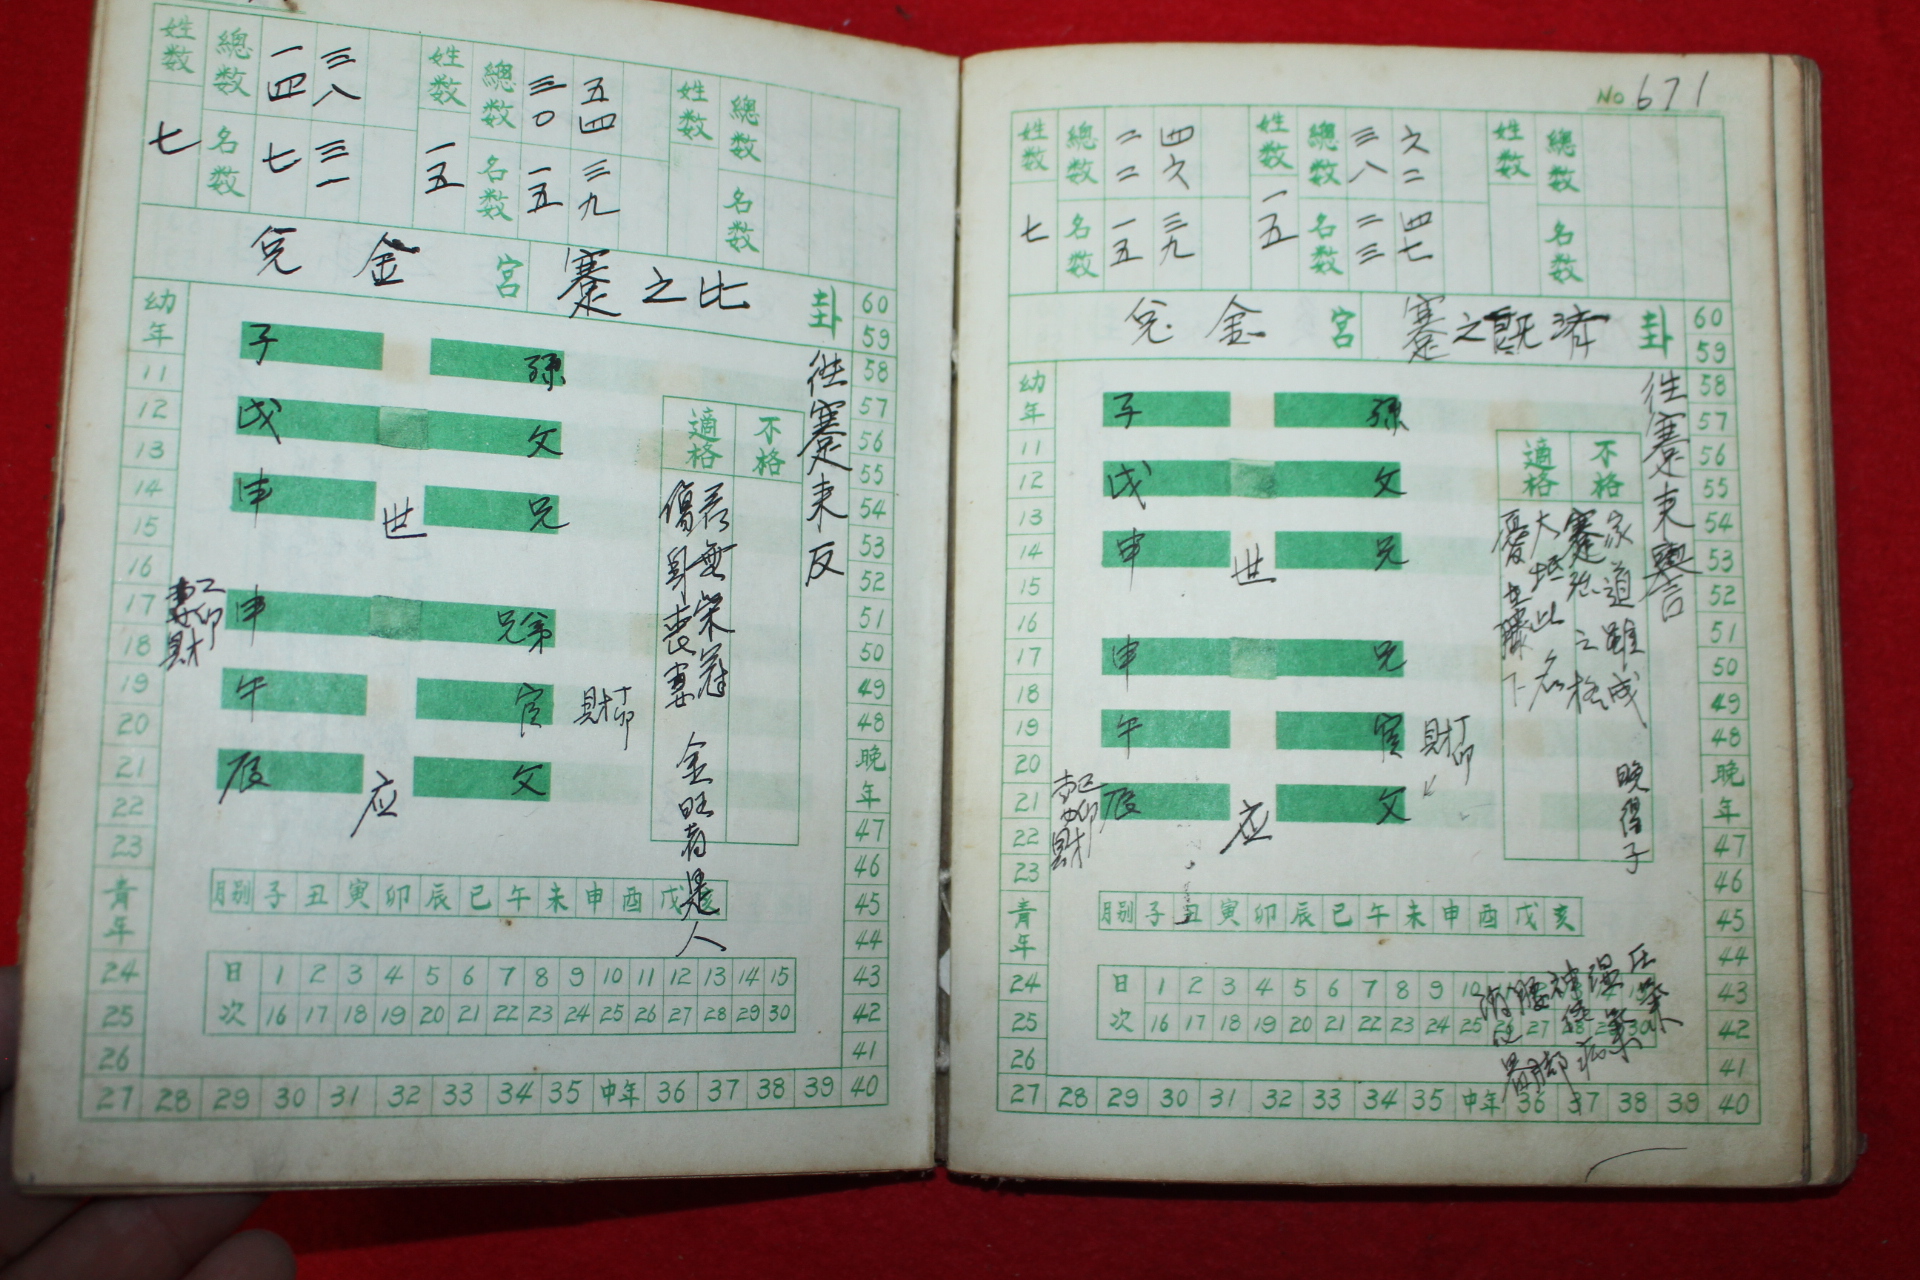 姓数 七
總数 一四 三八
名数 七 三一
姓数 一五
總数 三〇 五四
名数 一五 三九
姓数
總数
名数
兌 金 宮 蹇之比 卦
往蹇来反
子 孫
戌 父
申 世 兄
申 兄弟
午 官
辰 应 父
適格 不格
金旺者是人
幼年 11 12 13 14 15 16 17 18 19 20 21 22 23 青年 24 25 26
27 28 29 30 31 32 33 34 35 中年 36 37 38 39 40
60 59 58 57 56 55 54 53 52 51 50 49 48 晩年 47 46 45 44 43 42 41
月別 子 丑 寅 卯 辰 巳 午 未 申 酉 戌 亥
日 1 2 3 4 5 6 7 8 9 10 11 12 13 14 15
次 16 17 18 19 20 21 22 23 24 25 26 27 28 29 30
No 671
姓数 七
總数 二二 四六
名数 一五 三九
姓数 一五
總数 三八 六二
名数 二三 四七
姓数
總数
名数
兌 金 宮 蹇之既済 卦
往蹇来譽
子 孫
戌 父
申 世 兄
申 兄
午 官
辰 应 父
適格 不格
家道雖成 晩得子
幼年 11 12 13 14 15 16 17 18 19 20 21 22 23 青年 24 25 26
27 28 29 30 31 32 33 34 35 中年 36 37 38 39 40
60 59 58 57 56 55 54 53 52 51 50 49 48 晩年 47 46 45 44 43 42 41
月別 子 丑 寅 卯 辰 巳 午 未 申 酉 戌 亥
日 1 2 3 4 5 6 7 8 9 10
次 16 17 18 19 20 21 22 23 24 25 26 27 28 29 30